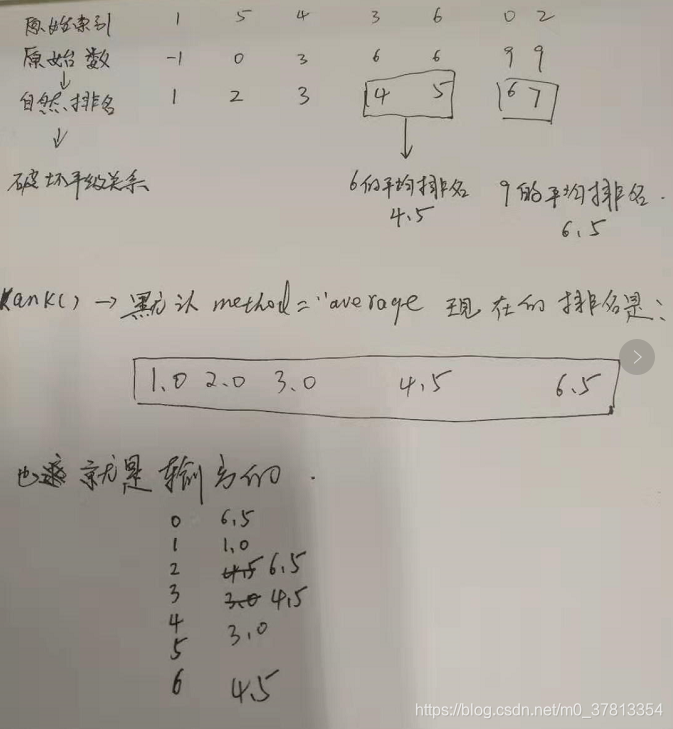 原始索引 1 5 4 3 6 0 2
原始数 -1 0 3 6 6 9 9
自然排名 1 2 3 4 5 6 7
破坏平级关系
6的平均排名 9的平均排名.
4.5 6.5
rank() → 默认 method = "average 现在的排名是:
1.0 2.0 3.0 4.5 6.5
也就是输出的.
0 6.5
1 1.0
2 4.5 6.5
3 3.0 4.5
4 3.0
5
6 4.5
https://blog.csdn.net/m0_37813354